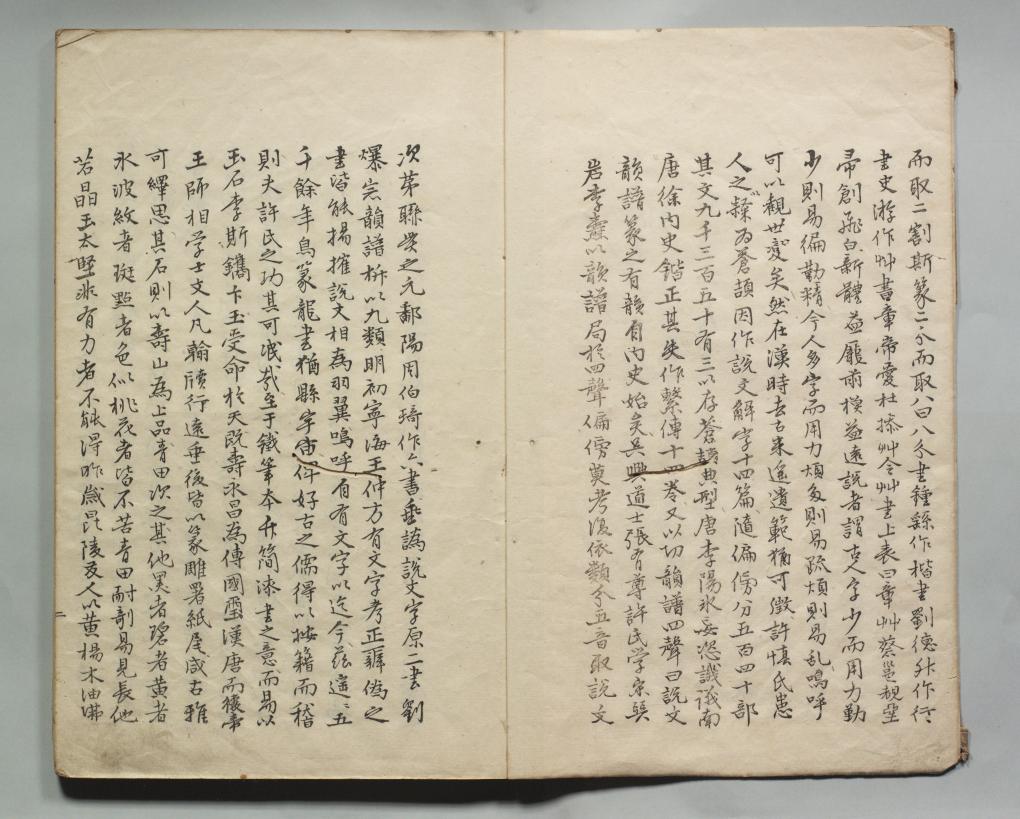 而取二割斯篆二分而取八曰八分書鍾繇作楷書劉德升作行
書史游作艸書章帝愛杜操艸令艸書上表曰章艸蔡邕觀堊
帚創飛白新體益龎而樸益遠說者謂古人字少而用力勤
少則易徧勤精今人多字而用力煩多則易䟽煩則易乱鳴呼
可以觀世變矣然在漢時去古未遙遺範猶可徵許慎氏患
人之隸為蒼頡因作說文解字十四篇隨偏傍分五百四十部
其文九千三百五十有三以存蒼頡典型唐李陽冰妄恣譏議南
唐徐內史鍇正其失作繫傳十四卷又以切韻譜四聲曰說文
韻譜篆之有韻自內史始矣吳興道士張有尊許氏学宗巽
岩李燾以韻譜局於四聲偏傍莫考復依類分五音取說文
次第聯貫之元鄱陽周伯琦作六書垂譌說文字原二書劉
爆宗韻譜析以九類明初寧海王仲方有文字考正辭偽之
書皆能揚搉說文相為羽翼鳴呼自有文字以迄今茲遙遙五
千餘年鳥篆龍書猶縣宇宙伴好古之儒得以按籍而稽
則夫許氏之功其可泯哉至于鐵筆本於簡漆書之意而易以
玉石李斯鐫卞玉受命於天既壽永昌為傳國璽漢唐而後帝
王師相学士文人凡翰牘行遠垂後皆以篆雕署紙尾咸古雅
可繹思其石則以壽山為上品青田次之其他黑者碧者黄者
氷波紋者斑㸃者色似桃花者皆不若青田耐剞易見長他
若晶玉太堅非有力者不能得昨歲昆陵友人以黄楊木油沸